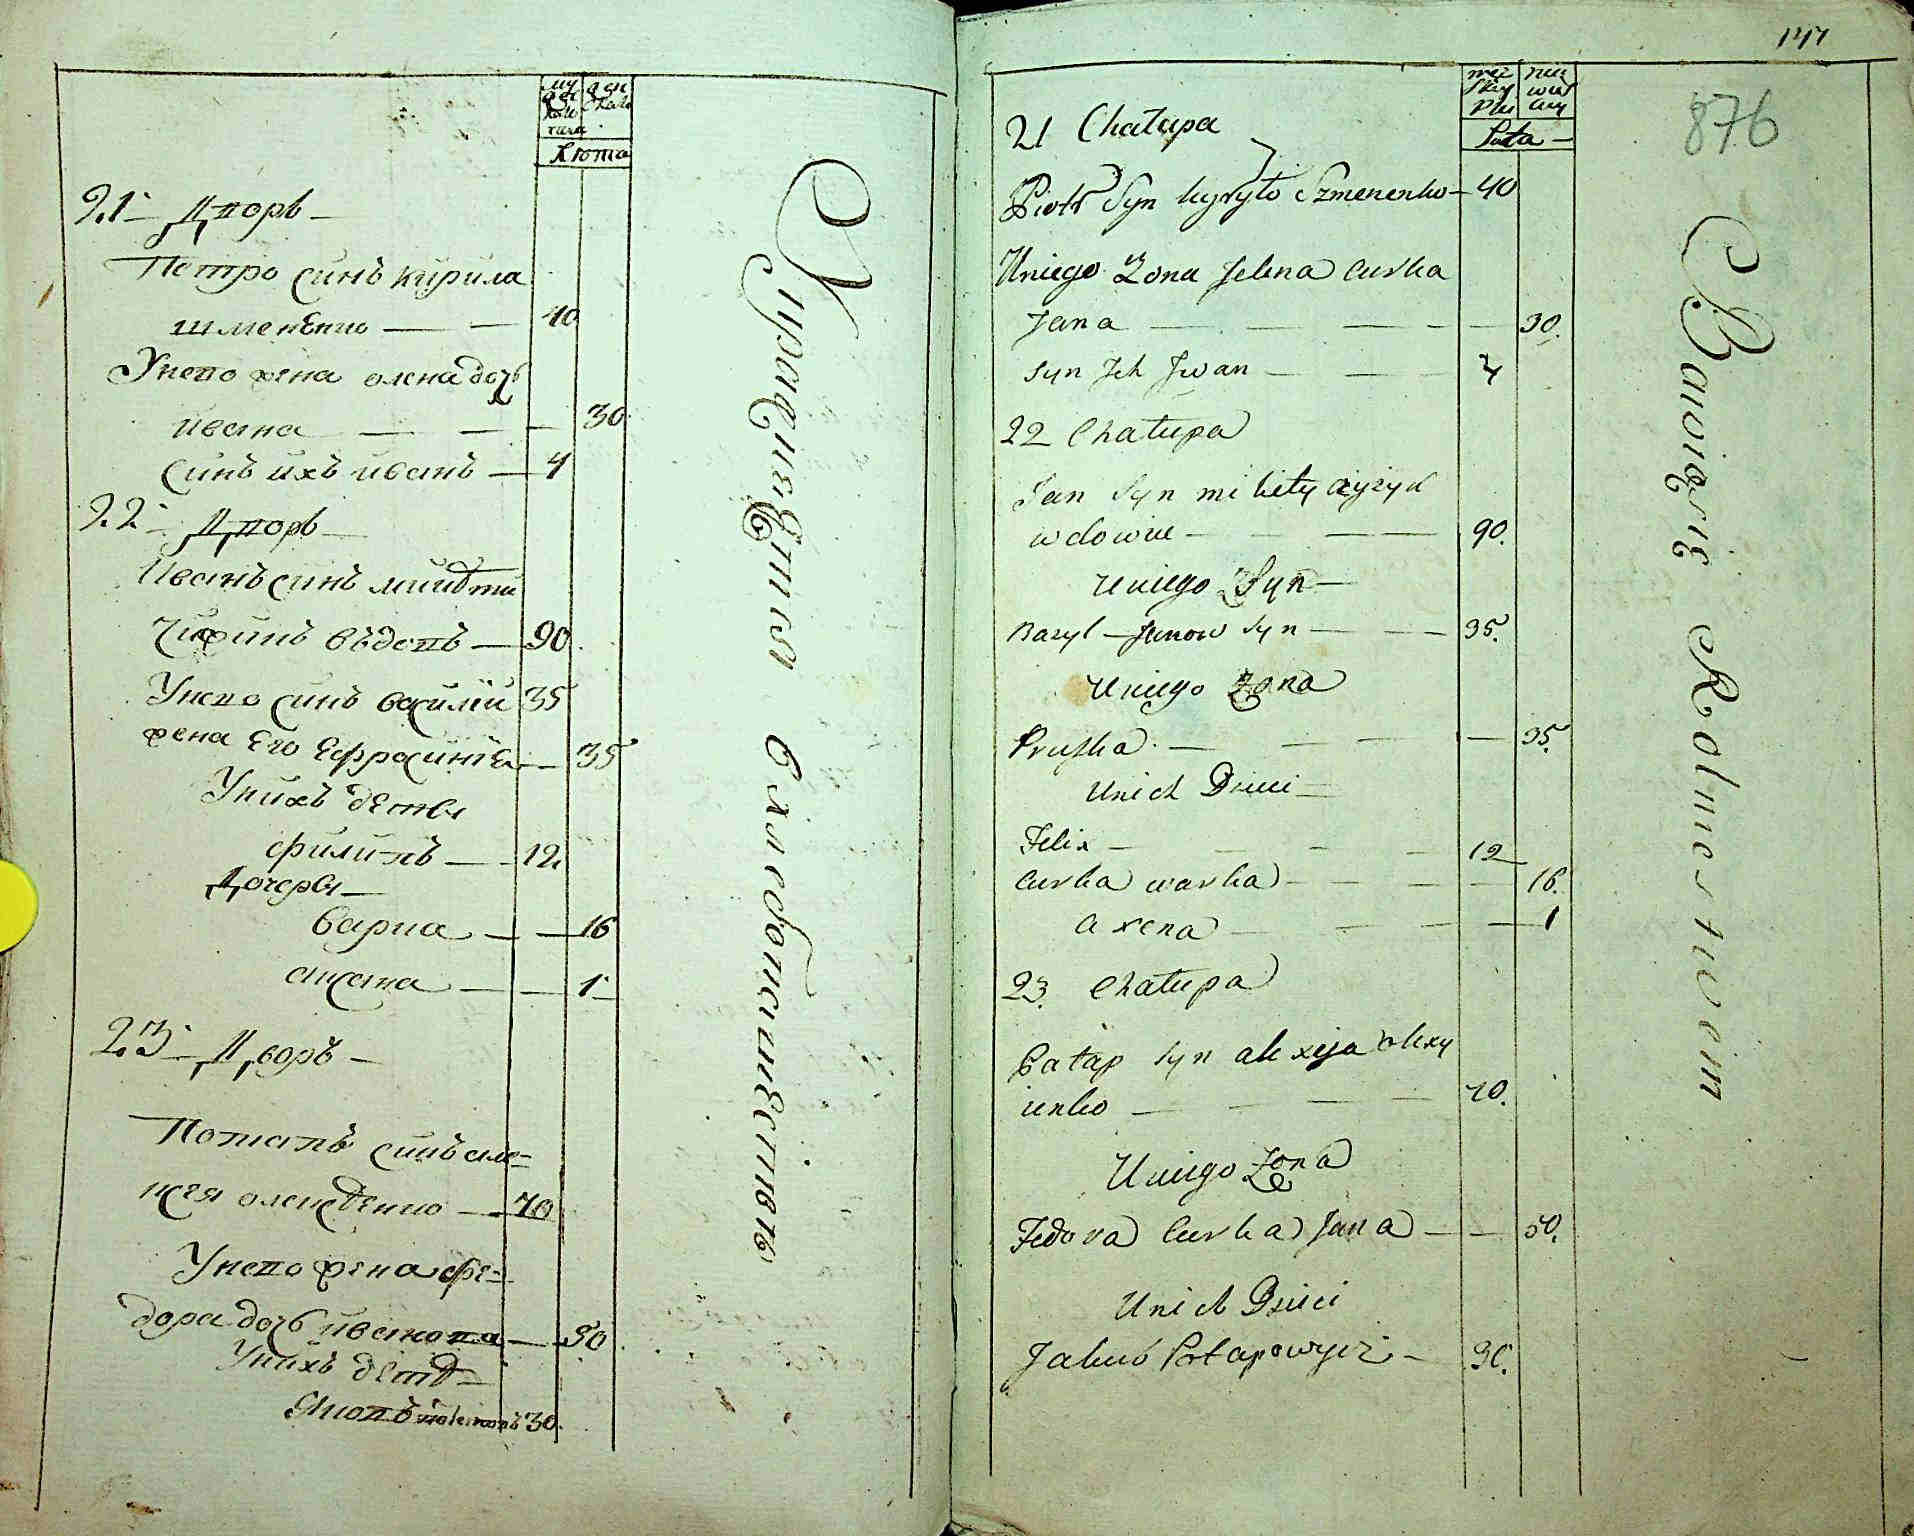 21 Дворъ
Петро синъ кирила
шменѣнко 40
Унего жена олена дочъ
ивана 30
синъ ихъ иванъ 4
22 Дворъ
Иванъ синъ микити
чижикъ вѣдовъ 90
Унего синъ василий 35
жена Его Ефросинія 35
Унихъ дети
филипъ 12
Дочеры
варка 16
аксена 1
23 Дворъ
Потапъ синъ але=
ксея олексѣенко 70
Унего жена фе=
дора дочъ иванова 50
Унихъ дети
Якопъ 30
Упражняется в хлебопашестве
147
876
Lata
21 Chatupa
Piotr Syn kyryto Szmenenko 40
Uniego Zona Jelena Curka
Jana 30
Syn Jch Jwan 4
22 Chatupa
Jan Syn mikity czyzyk
wdowiec 90
Uniego Syn
Bazyl Janow Syn 35
Uniego Zona
Pruska 35
Unich Dzieci
Felix 12
Curka warka 16
axena 1
23 Chatupa
Patap Syn alexija olexy
ienko 70
Uniego Zona
Fedora Curka Jana 50
Unich Dzieci
Jakub Potapowycz 30
Bawiąsię Rolnictwem